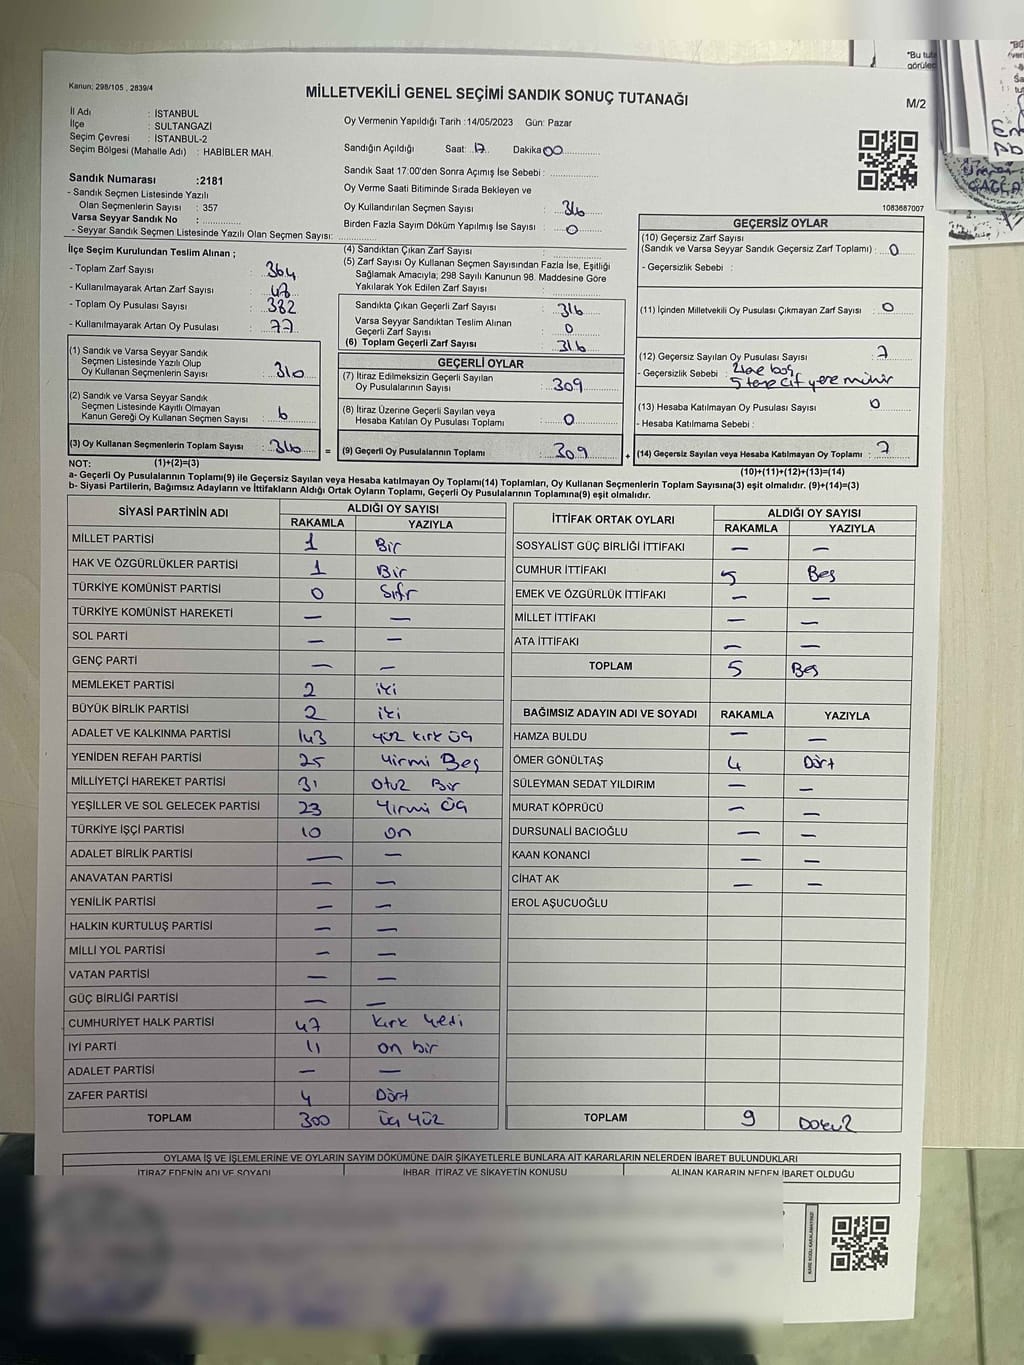 Kanun; 298/105 , 2839/4
MİLLETVEKİLİ GENEL SEÇİMİ SANDIK SONUÇ TUTANAĞI
M/2
İl Adı : İSTANBUL
İlçe : SULTANGAZİ
Seçim Çevresi : İSTANBUL-2
Seçim Bölgesi (Mahalle Adı) : HABİBLER MAH.
Oy Vermenin Yapıldığı Tarih :14/05/2023 Gün: Pazar
Sandığın Açıldığı Saat: 17 Dakika 00
Sandık Saat 17:00'den Sonra Açımış İse Sebebi :
Oy Verme Saati Bitiminde Sırada Bekleyen ve
Oy Kullandırılan Seçmen Sayısı : 316
Birden Fazla Sayım Döküm Yapılmış İse Sayısı : 0
Sandık Numarası :2181
- Sandık Seçmen Listesinde Yazılı
Olan Seçmenlerin Sayısı : 357
Varsa Seyyar Sandık No :
- Seyyar Sandık Seçmen Listesinde Yazılı Olan Seçmen Sayısı:
1083687007
İlçe Seçim Kurulundan Teslim Alınan ;
- Toplam Zarf Sayısı : 364
- Kullanılmayarak Artan Zarf Sayısı : 48
- Toplam Oy Pusulası Sayısı : 382
- Kullanılmayarak Artan Oy Pusulası : 77
(1) Sandık ve Varsa Seyyar Sandık
Seçmen Listesinde Yazılı Olup
Oy Kullanan Seçmenlerin Sayısı : 310
(2) Sandık ve Varsa Seyyar Sandık
Seçmen Listesinde Kayıtlı Olmayan
Kanun Gereği Oy Kullanan Seçmen Sayısı : 6
(3) Oy Kullanan Seçmenlerin Toplam Sayısı : 316 =
(4) Sandıktan Çıkan Zarf Sayısı :
(5) Zarf Sayısı Oy Kullanan Seçmen Sayısından Fazla İse, Eşitliği
Sağlamak Amacıyla; 298 Sayılı Kanunun 98. Maddesine Göre
Yakılarak Yok Edilen Zarf Sayısı :
Sandıkta Çıkan Geçerli Zarf Sayısı : 316
Varsa Seyyar Sandıktan Teslim Alınan
Geçerli Zarf Sayısı : 0
(6) Toplam Geçerli Zarf Sayısı : 316
GEÇERLİ OYLAR
(7) İtiraz Edilmeksizin Geçerli Sayılan
Oy Pusulalarının Sayısı : 309
(8) İtiraz Üzerine Geçerli Sayılan veya
Hesaba Katılan Oy Pusulası Toplamı : 0
(9) Geçerli Oy Pusulalarının Toplamı : 309 +
GEÇERSİZ OYLAR
(10) Geçersiz Zarf Sayısı
(Sandık ve Varsa Seyyar Sandık Geçersiz Zarf Toplamı) : 0
- Geçersizlik Sebebi :
(11) İçinden Milletvekili Oy Pusulası Çıkmayan Zarf Sayısı : 0
(12) Geçersiz Sayılan Oy Pusulası Sayısı : 7
- Geçersizlik Sebebi : 2 tane boş
5 tane çif yere mühür
(13) Hesaba Katılmayan Oy Pusulası Sayısı : 0
- Hesaba Katılmama Sebebi :
(14) Geçersiz Sayılan veya Hesaba Katılmayan Oy Toplamı : 7
NOT: (1)+(2)=(3) (10)+(11)+(12)+(13)=(14)
a- Geçerli Oy Pusulalarının Toplamı(9) ile Geçersiz Sayılan veya Hesaba Katılmayan Oy Toplamı(14) Toplamları, Oy Kullanan Seçmenlerin Toplam Sayısına(3) eşit olmalıdır. (9)+(14)=(3)
b- Siyasi Partilerin, Bağımsız Adayların ve İttifakların Aldığı Ortak Oyların Toplamı, Geçerli Oy Pusulalarının Toplamına(9) eşit olmalıdır.
SİYASİ PARTİNİN ADI ALDIĞI OY SAYISI
RAKAMLA YAZIYLA
MİLLET PARTİSİ 1 Bir
HAK VE ÖZGÜRLÜKLER PARTİSİ 1 Bir
TÜRKİYE KOMÜNİST PARTİSİ 0 Sıfr
TÜRKİYE KOMÜNİST HAREKETİ — —
SOL PARTİ — —
GENÇ PARTİ — —
MEMLEKET PARTİSİ 2 iki
BÜYÜK BİRLİK PARTİSİ 2 iki
ADALET VE KALKINMA PARTİSİ 143 yüz kırk üç
YENİDEN REFAH PARTİSİ 25 Yirmi Beş
MİLLİYETÇİ HAREKET PARTİSİ 31 Otuz Bir
YEŞİLLER VE SOL GELECEK PARTİSİ 23 Yirmi Üç
TÜRKİYE İŞÇİ PARTİSİ 10 on
ADALET BİRLİK PARTİSİ — —
ANAVATAN PARTİSİ — —
YENİLİK PARTİSİ — —
HALKIN KURTULUŞ PARTİSİ — —
MİLLİ YOL PARTİSİ — —
VATAN PARTİSİ — —
GÜÇ BİRLİĞİ PARTİSİ — —
CUMHURİYET HALK PARTİSİ 47 kırk yedi
İYİ PARTİ 11 on bir
ADALET PARTİSİ — —
ZAFER PARTİSİ 4 Dört
TOPLAM 300 üç yüz
İTTİFAK ORTAK OYLARI ALDIĞI OY SAYISI
RAKAMLA YAZIYLA
SOSYALİST GÜÇ BİRLİĞİ İTTİFAKI — —
CUMHUR İTTİFAKI 5 Beş
EMEK VE ÖZGÜRLÜK İTTİFAKI — —
MİLLET İTTİFAKI — —
ATA İTTİFAKI — —
TOPLAM 5 Beş
BAĞIMSIZ ADAYIN ADI VE SOYADI RAKAMLA YAZIYLA
HAMZA BULDU — —
ÖMER GÖNÜLTAŞ 4 Dört
SÜLEYMAN SEDAT YILDIRIM — —
MURAT KÖPRÜCÜ — —
DURSUNALİ BACIOĞLU — —
KAAN KONANCİ — —
CİHAT AK — —
EROL AŞUCUOĞLU
TOPLAM 9 Dokuz
OYLAMA İŞ VE İŞLEMLERİNE VE OYLARIN SAYIM DÖKÜMÜNE DAİR ŞİKAYETLERLE BUNLARA AİT KARARLARIN NELERDEN İBARET BULUNDUKLARI
İTİRAZ EDENİN ADI VE SOYADI İHBAR, İTİRAZ VE ŞİKAYETİN KONUSU ALINAN KARARIN NEDEN İBARET OLDUĞU